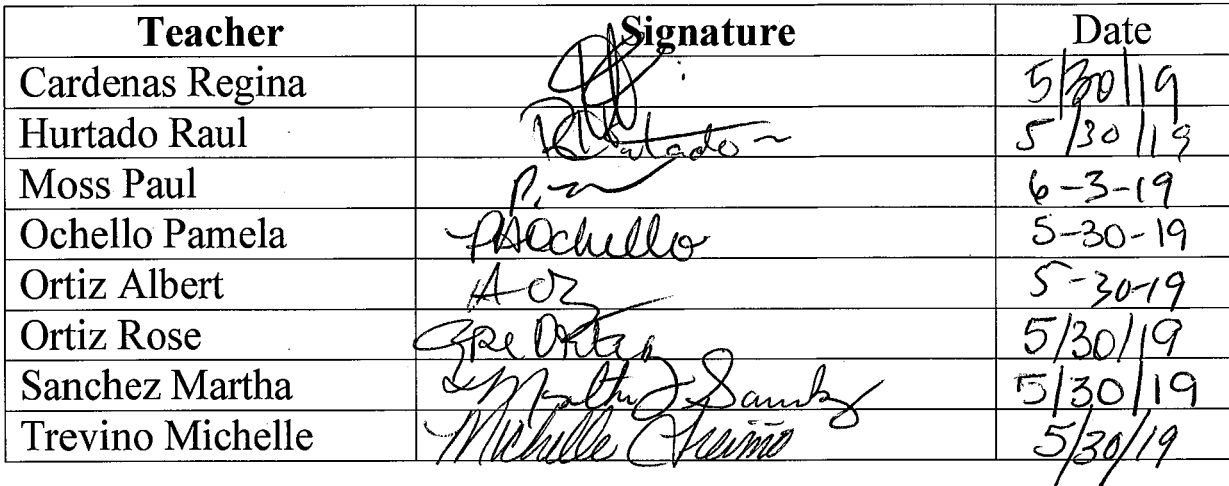 Teacher Signature Date
Cardenas Regina 5/30/19
Hurtado Raul R Hurtado 5/30/19
Moss Paul P. 6-3-19
Ochello Pamela PAOchello 5-30-19
Ortiz Albert A 5-30-19
Ortiz Rose Ortiz 5/30/19
Sanchez Martha Martha Sanchez 5/30/19
Trevino Michelle Michelle Treviño 5/30/19